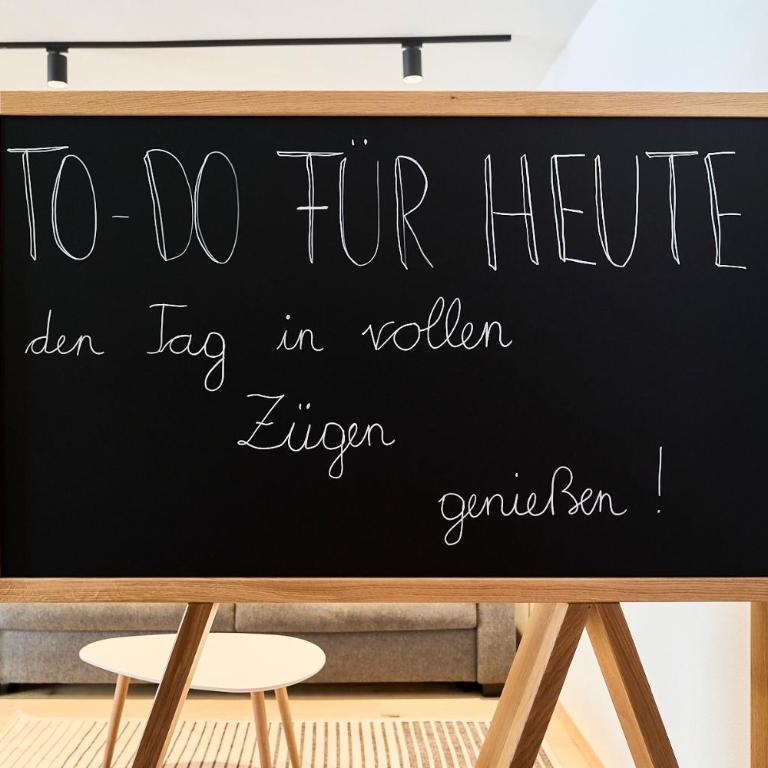 TO-DO FÜR HEUTE
den Tag in vollen
Zügen
genießen!